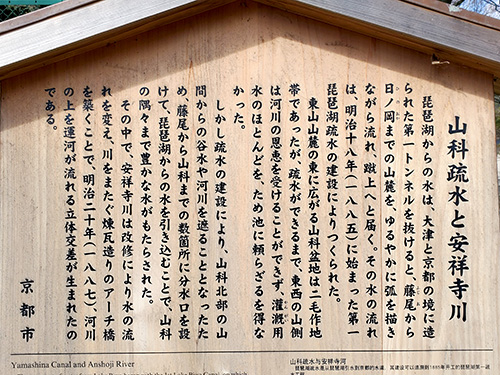 山科疏水と安祥寺川
琵琶湖からの水は、大津と京都の境に造
られた第一トンネルを抜けると、藤尾から
日ノ岡までの山麓を、ゆるやかに弧を描き
ながら流れ、蹴上へと届く。その水の流れ
は、明治十八年（一八八五）に始まった第一
琵琶湖疏水の建設によりつくられた。
東山山麓の東に広がる山科盆地は二毛作地
帯であったが、疏水ができるまで、東西の山側
は河川の恩恵を受けることができず、灌漑用
水のほとんどを、ため池に頼らざるを得な
かった。
しかし疏水の建設により、山科北部の山
間からの谷水や河川を遮ることとなったた
め、藤尾から山科までの数箇所に分水口を設
けて、琵琶湖からの水を引き込むことで、山科
の隅々まで豊かな水がもたらされた。
その中で、安祥寺川は改修により水の流
れを変え、川をまたぐ煉瓦造りのアーチ橋
を築くことで、明治二十年（一八八七）、河川
の上を運河が流れる立体交差が生まれたの
である。
京都市
Yamashina Canal and Anshoji River
山科疏水与安祥寺河